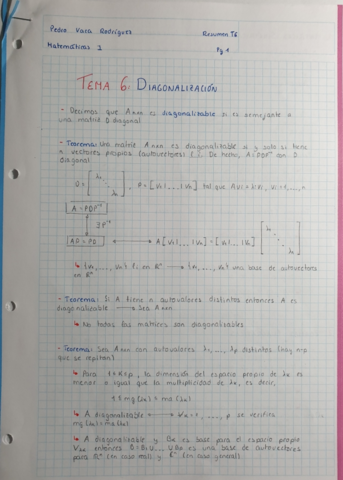 Pedro Vaca Rodríguez Resumen T6
Matemáticas 1 Pg 1
TEMA 6: DIAGONALIZACIÓN
- Decimos que Anxn es diagonalizable si es semejante a
una matriz D diagonal
- Teorema: Una matriz Anxn es diagonalizable si y solo si tiene
n vectores propios (autovectores) l.i. De hecho, A=PDP⁻¹ con D
diagonal
D = [λ₁ ⋱ λn], P = [V₁|...|Vn] tal que AVi = λiVi, ∀i=1,...,n
A = PDP⁻¹
∃P⁻¹
AP = PD ⟷ A[V₁|...|Vn] = [V₁|...|Vn] [λ₁ ⋱ λn]
↳ {v₁,...,vn} l.i en ℝⁿ ⟶ {v₁,...,vn} una base de autovectores
en ℝⁿ
- Teorema: Si A tiene n autovalores distintos entonces A es
diagonalizable ⟶ Sea Anxn
↳ No todas las matrices son diagonalizables
- Teorema: Sea Anxn con autovalores λ₁,..., λp distintos (hay n-p
que se repiten)
↳ Para 1≤k≤p, la dimensión del espacio propio de λk es
menor o igual que la multiplicidad de λk, es decir,
1 ≤ mg(λk) ≤ ma(λk)
↳ A diagonalizable ⟷ ∀k=1,...,p se verifica
mg(λk) = ma(λk)
↳ A diagonalizable y Bk es base para el espacio propio
Vλk entonces B=B₁U...UBp es una base de autovectores
para ℝⁿ (en caso real) y ℂⁿ (en caso general)